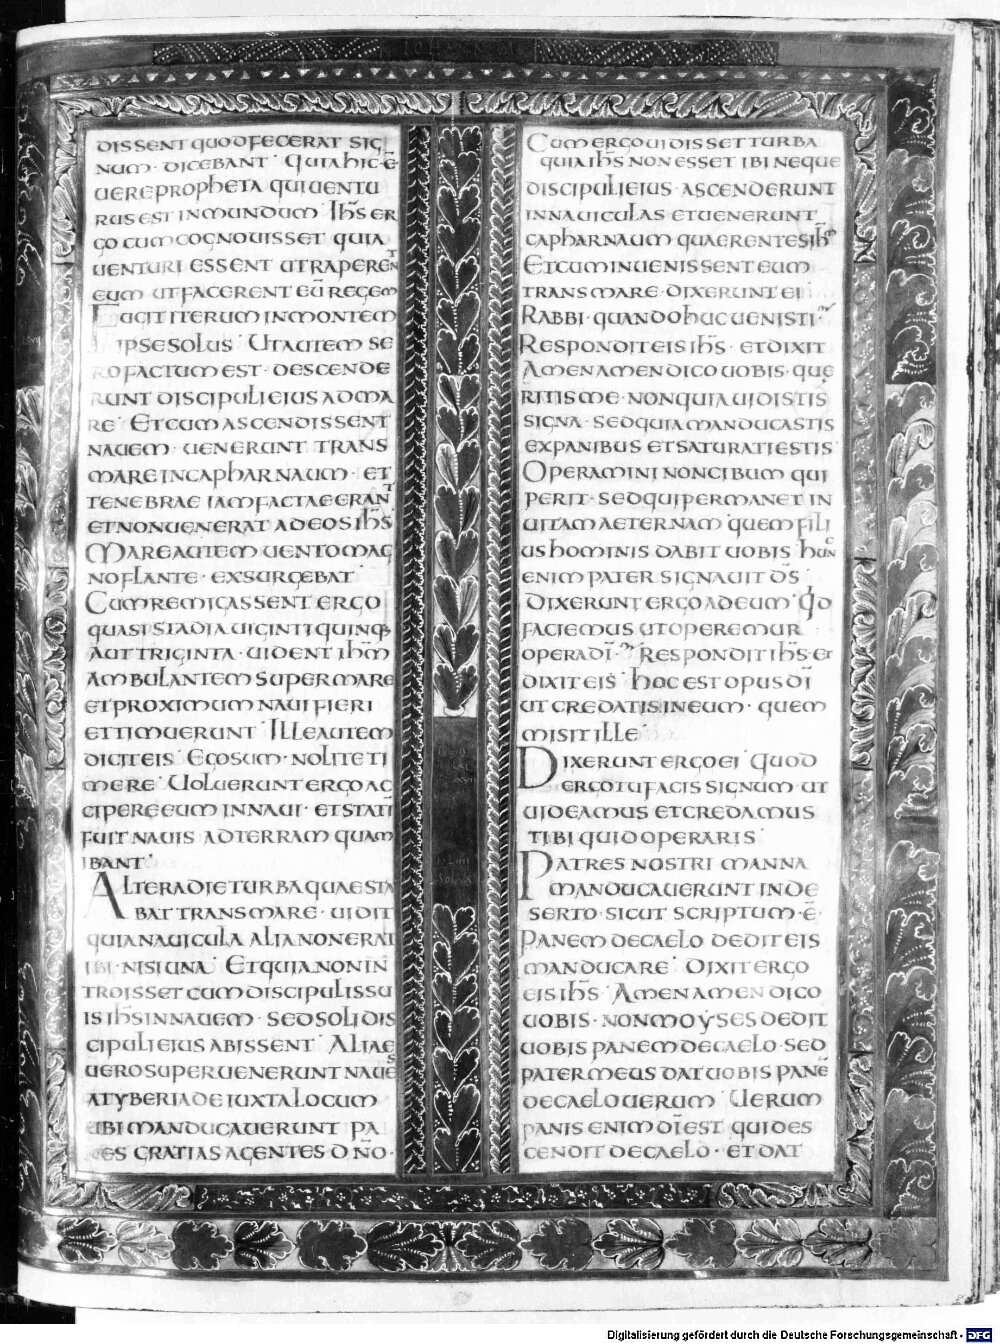 DISSENT QUOD FECERAT SIG
NUM · DICEBANT · QUIA HIC · Ē ·
UERE PROPHETA QUI UENTU
RUS EST IN MUNDUM · IHS ER
GO CUM COGNOUISSET QUIA
UENTURI ESSENT UT RAPERENT
EUM UT FACERENT EŪ REGEM
FUGIT ITERUM IN MONTEM
IPSE SOLUS · UT AUTEM SE
RO FACTUM EST · DESCENDE
RUNT DISCIPULI EIUS AD MA
RE · ET CUM ASCENDISSENT
NAUEM · UENERUNT TRANS
MARE IN CAPHARNAUM · ET
TENEBRAE IAM FACTAE ERANT
ET NON UENERAT AD EOS IHS ·
MARE AUTEM UENTO MAG
NO FLANTE · EXSURGEBAT ·
CUM REMIGASSENT ERGO
QUASI STADIA UIGINTI QUINQ;
AUT TRIGINTA · UIDENT IHM
AMBULANTEM SUPER MARE
ET PROXIMUM NAUI FIERI
ET TIMUERUNT · ILLE AUTEM
DICIT EIS · EGO SUM · NOLITE TI
MERE · UOLUERUNT ERGO AC
CIPERE EUM IN NAUI · ET STATĪ
FUIT NAUIS AD TERRAM QUAM
IBANT ·
ALTERA DIE TURBA QUAE STA
BAT TRANS MARE · UIDIT
QUIA NAUICULA ALIA NON ERAT
IBI · NISI UNA · ET QUIA NON IN
TROISSET CUM DISCIPULIS SU
IS IHS IN NAUEM · SED SOLI DIS
CIPULI EIUS ABISSENT · ALIAE
UERO SUPERUENERUNT NAUES
A TYBERIADE IUXTA LOCUM
UBI MANDUCAUERUNT PA
ES GRATIAS AGENTES DNO ·
CUM ERGO UIDISSET TURBA
QUIA IHS NON ESSET IBI NEQUE
DISCIPULI EIUS · ASCENDERUNT
IN NAUICULAS · ET UENERUNT
CAPHARNAUM QUAERENTES IHM
ET CUM INUENISSENT EUM
TRANS MARE · DIXERUNT EI ·
RABBI · QUANDO HUC UENISTI ·
RESPONDIT EIS IHS · ET DIXIT
AMEN AMEN DICO UOBIS · QUE
RITIS ME · NON QUIA UIDISTIS
SIGNA · SED QUIA MANDUCASTIS
EX PANIBUS ET SATURATI ESTIS ·
OPERAMINI NON CIBUM QUI
PERIT · SED QUI PERMANET IN
UITAM AETERNAM QUEM FILI
US HOMINIS DABIT UOBIS · HUNC
ENIM PATER SIGNAUIT DS ·
DIXERUNT ERGO AD EUM · QD
FACIEMUS UT OPEREMUR
OPERA DI · RESPONDIT IHS ET
DIXIT EIS · HOC EST OPUS DI
UT CREDATIS IN EUM · QUEM
MISIT ILLE ·
DIXERUNT ERGO EI · QUOD
ERGO TU FACIS SIGNUM · UT
UIDEAMUS ET CREDAMUS
TIBI QUID OPERARIS ·
PATRES NOSTRI MANNA
MANDUCAUERUNT IN DE
SERTO · SICUT SCRIPTUM · Ē ·
PANEM DE CAELO DEDIT EIS
MANDUCARE · DIXIT ERGO
EIS IHS · AMEN AMEN DICO
UOBIS · NON MOYSES DEDIT
UOBIS PANEM DE CAELO · SED
PATER MEUS DAT UOBIS PANĒ
DE CAELO UERUM · UERUM
PANIS ENIM DI EST QUI DES
CENDIT DE CAELO · ET DAT
Digitalisierung gefördert durch die Deutsche Forschungsgemeinschaft - DFG